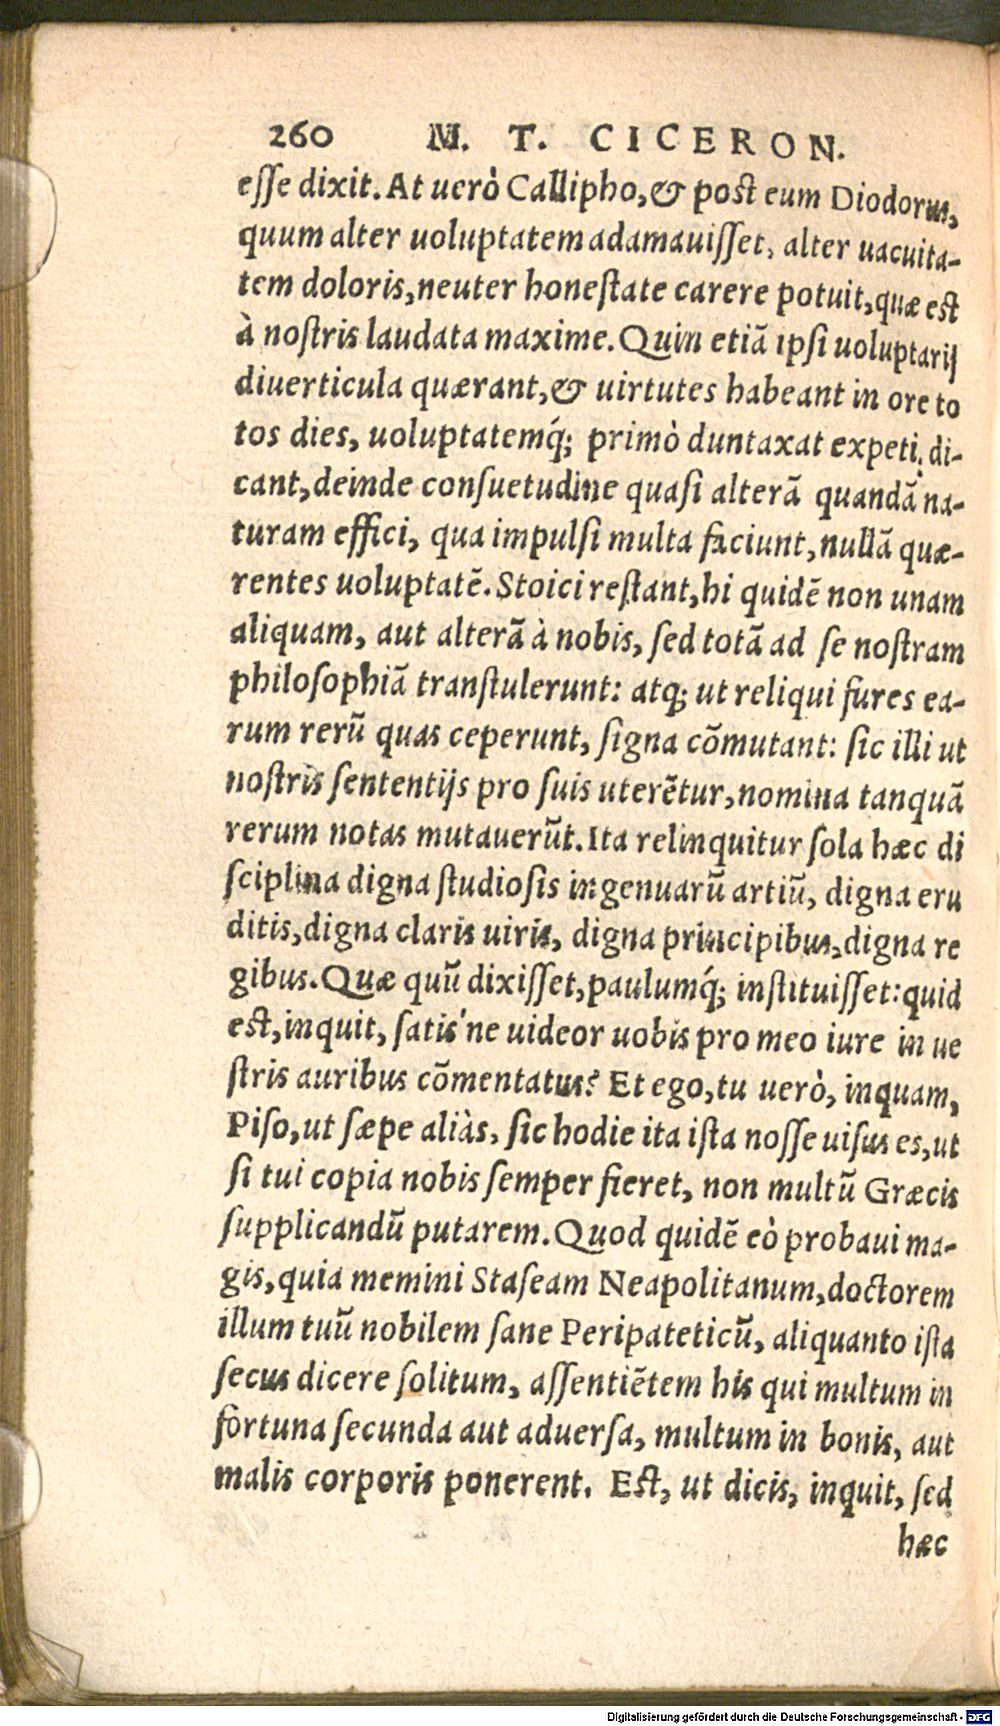 260 M. T. CICERON.
eſſe dixit. At uerò Callipho, & poſt eum Diodorus,
quum alter uoluptatem adamauiſſet, alter uacuita-
tem doloris, neuter honeſtate carere potuit, quæ eſt
à noſtris laudata maxime. Quin etiā ipſi uoluptarij
diuerticula quærant, & uirtutes habeant in ore to
tos dies, uoluptatemq́; primò duntaxat expeti, di-
cant, deinde conſuetudine quaſi alterā quandā na-
turam effici, qua impulſi multa faciunt, nullā quæ-
rentes uoluptatē. Stoici reſtant, hi quidē non unam
aliquam, aut alterā à nobis, ſed totā ad ſe noſtram
philoſophiā tranſtulerunt: atq; ut reliqui fures ea-
rum rerū quas ceperunt, ſigna cōmutant: ſic illi ut
noſtris ſententijs pro ſuis uterētur, nomina tanquā
rerum notas mutauerūt. Ita relinquitur ſola hæc di
ſciplina digna ſtudioſis ingenuarū artiū, digna eru
ditis, digna claris uiris, digna principibus, digna re
gibus. Quæ quū dixiſſet, paulumq́; inſtituiſſet: quid
eſt, inquit, ſatis'ne uideor uobis pro meo iure in ue
ſtris auribus cōmentatus? Et ego, tu uerò, inquam,
Piſo, ut ſæpe aliàs, ſic hodie ita iſta noſſe uiſus es, ut
ſi tui copia nobis ſemper fieret, non multū Græcis
ſupplicandū putarem. Quod quidē eò probaui ma-
gis, quia memini Staſeam Neapolitanum, doctorem
illum tuū nobilem ſane Peripateticū, aliquanto iſta
ſecus dicere ſolitum, aſſentiētem his qui multum in
fortuna ſecunda aut aduerſa, multum in bonis, aut
malis corporis ponerent. Eſt, ut dicis, inquit, ſed
hæc
Digitalisierung gefördert durch die Deutsche Forschungsgemeinschaft - DFG